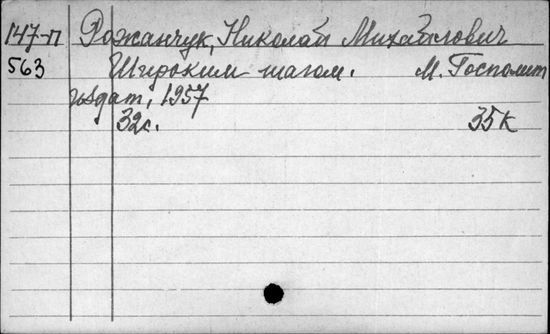 147-п Рожанчук, Николай Михайлович
563 Широким шагом. М. Госполит
издат, 1957
32с. 35к